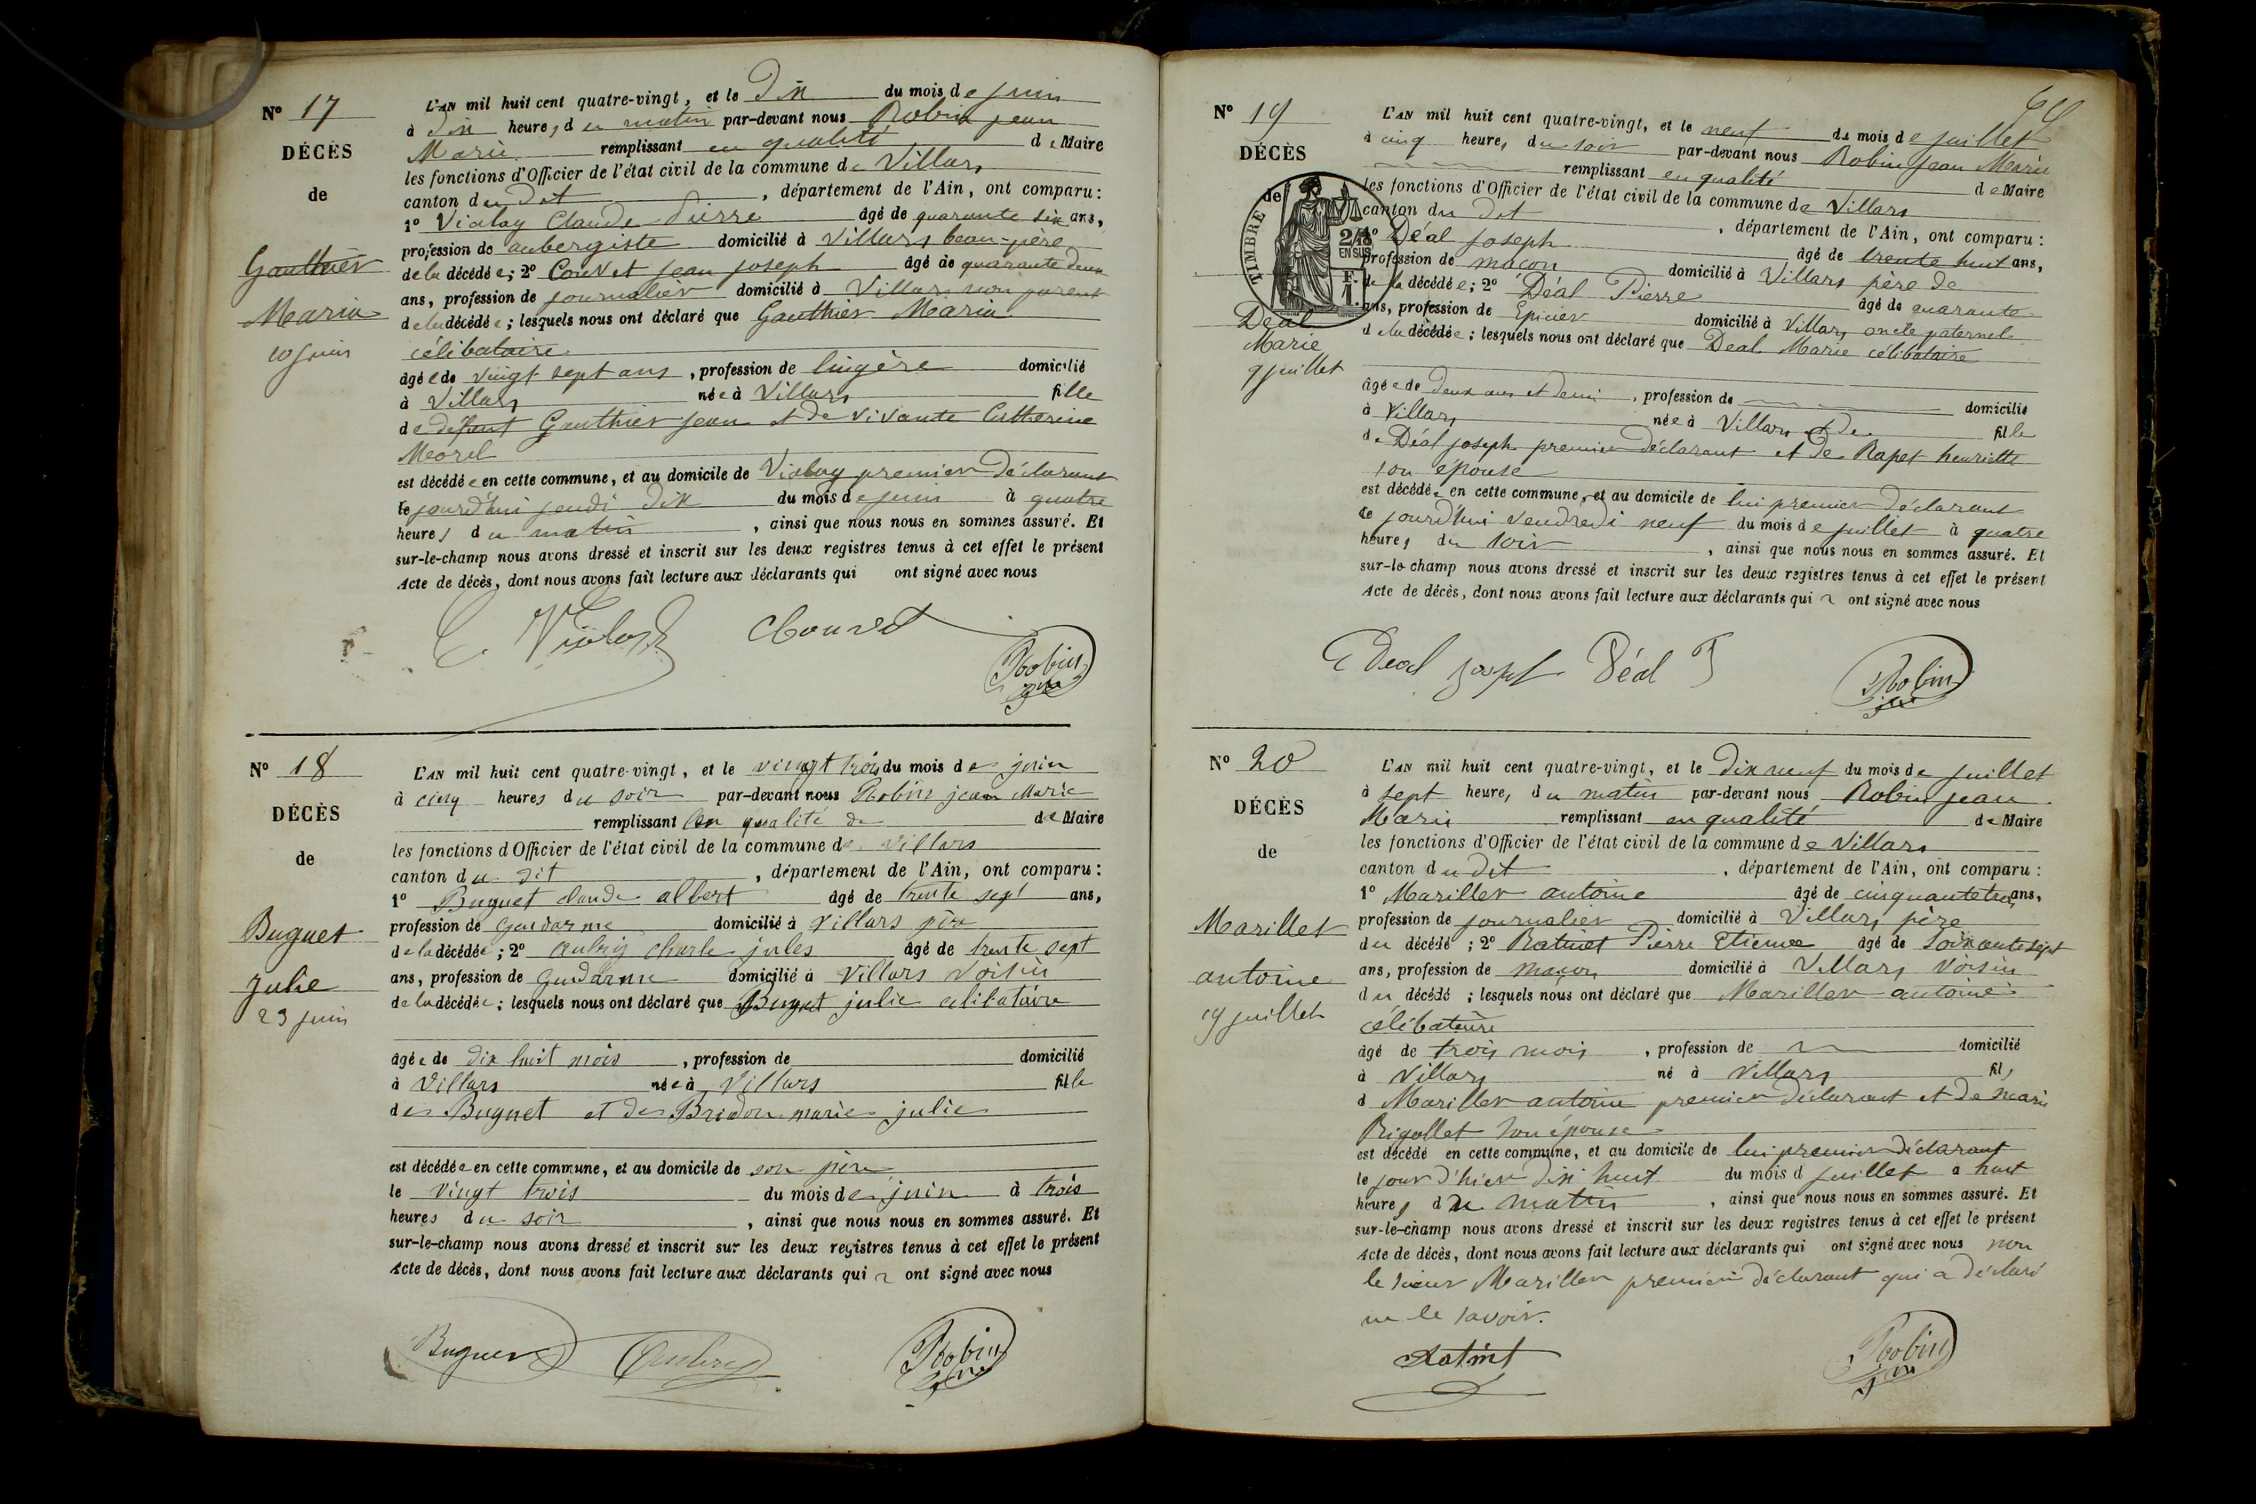 Nº 17
DÉCÈS
de
Gauthier
Maria
10 juin
L'AN mil huit cent quatre-vingt, et le Dix du mois de juin
à Dix heures du matin par-devant nous Robin jean
Marie remplissant en qualité de Maire
les fonctions d'Officier de l'état civil de la commune de Villars
canton du Dit, département de l'Ain, ont comparu :
1º Violay Claude Pierre âgé de quarante six ans,
profession de aubergiste domicilié à Villars beau-père
de la décédée; 2º Couvet jean joseph âgé de quarante deux
ans, profession de journalier domicilié à Villars non parent
de la décédée; lesquels nous ont déclaré que Gauthier Maria
célibataire
âgée de vingt sept ans, profession de lingère domicilié
à Villars née à Villars fille
de défunt Gauthier jean et de vivante Catherine
Morel
est décédée en cette commune, et au domicile de Violay premier déclarant
le jourd'hui jeudi dix du mois de juin à quatre
heures du matin, ainsi que nous nous en sommes assuré. Et
sur-le-champ nous avons dressé et inscrit sur les deux registres tenus à cet effet le présent
Acte de décès, dont nous avons fait lecture aux déclarants qui ont signé avec nous
C. Violay Couvet
Robin
Nº 18
DÉCÈS
de
Buguet
Julie
23 juin
L'AN mil huit cent quatre-vingt, et le vingt trois du mois de juin
à cinq heures du soir par-devant nous Robin jean Marie
remplissant en qualité de de Maire
les fonctions d'Officier de l'état civil de la commune de Villars
canton du dit, département de l'Ain, ont comparu :
1º Buguet claude albert âgé de trente sept ans,
profession de gendarme domicilié à Villars père
de la décédée; 2º aubry charle jules âgé de trente sept
ans, profession de gendarme domicilié à Villars voisin
de la décédée; lesquels nous ont déclaré que Buguet julie célibataire
âgée de dix huit mois, profession de domicilié
à Villars née à Villars fille
de Buguet et de Bridon marie julie
est décédée en cette commune, et au domicile de son père
le vingt trois du mois de juin à trois
heures du soir, ainsi que nous nous en sommes assuré. Et
sur-le-champ nous avons dressé et inscrit sur les deux registres tenus à cet effet le présent
Acte de décès, dont nous avons fait lecture aux déclarants qui ont signé avec nous
Buguet Aubry Robin
Nº 19
DÉCÈS
de
TIMBRE
2/10
EN SUS
F.
1.
Déal
Marie
9 juillet
L'AN mil huit cent quatre-vingt, et le neuf du mois de juillet
à cinq heures du soir par-devant nous Robin Jean Marie
remplissant en qualité de Maire
les fonctions d'Officier de l'état civil de la commune de Villars
canton du dit, département de l'Ain, ont comparu :
1º Déal joseph âgé de trente huit ans,
profession de maçon domicilié à Villars père de
de la décédée; 2º Déal Pierre âgé de quarante
ans, profession de Epicier domicilié à Villars oncle paternel
de la décédée; lesquels nous ont déclaré que Déal Marie célibataire
âgée de deux ans et demi, profession de domicilié
à Villars née à Villars et de fille
de Déal joseph premier déclarant et de Rapet henriette
son épouse
est décédée en cette commune, et au domicile de lui premier déclarant
le jourd'hui vendredi neuf du mois de juillet à quatre
heures du soir, ainsi que nous nous en sommes assuré. Et
sur-le-champ nous avons dressé et inscrit sur les deux registres tenus à cet effet le présent
Acte de décès, dont nous avons fait lecture aux déclarants qui ont signé avec nous
Deal joseph Déal P
Robin
Nº 20
DÉCÈS
de
Marillet
antoine
19 juillet
L'AN mil huit cent quatre-vingt, et le Dix neuf du mois de juillet
à sept heures du matin par-devant nous Robin jean
Marie remplissant en qualité de Maire
les fonctions d'Officier de l'état civil de la commune de Villars
canton du dit, département de l'Ain, ont comparu :
1º Mariller antoine âgé de cinquante trois ans,
profession de journalier domicilié à Villars père
du décédé; 2º Ratinet Pierre Etienne âgé de soixante sept
ans, profession de maçon domicilié à Villars voisin
du décédé; lesquels nous ont déclaré que Mariller antoine
célibataire
âgé de trois mois, profession de domicilié
à Villars né à Villars fils
d Mariller antoine premier déclarant et de marie
Rigollet son épouse
est décédé en cette commune, et au domicile de lui premier déclarant
le jour d'hier dix huit du mois d juillet à huit
heures du matin, ainsi que nous nous en sommes assuré. Et
sur-le-champ nous avons dressé et inscrit sur les deux registres tenus à cet effet le présent
Acte de décès, dont nous avons fait lecture aux déclarants qui ont signé avec nous non
le sieur Mariller premier déclarant qui a déclaré
ne le savoir.
Ratinet
Robin